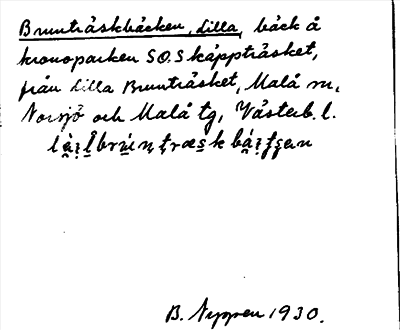 Brunträskbäcken, Lilla, bäck å
kronoparken SO.S käppträsket,
från Lilla Brunträsket, Malå sn,
Norsjö och Malå tg, Västerb. l.
B. Nyppen 1930.